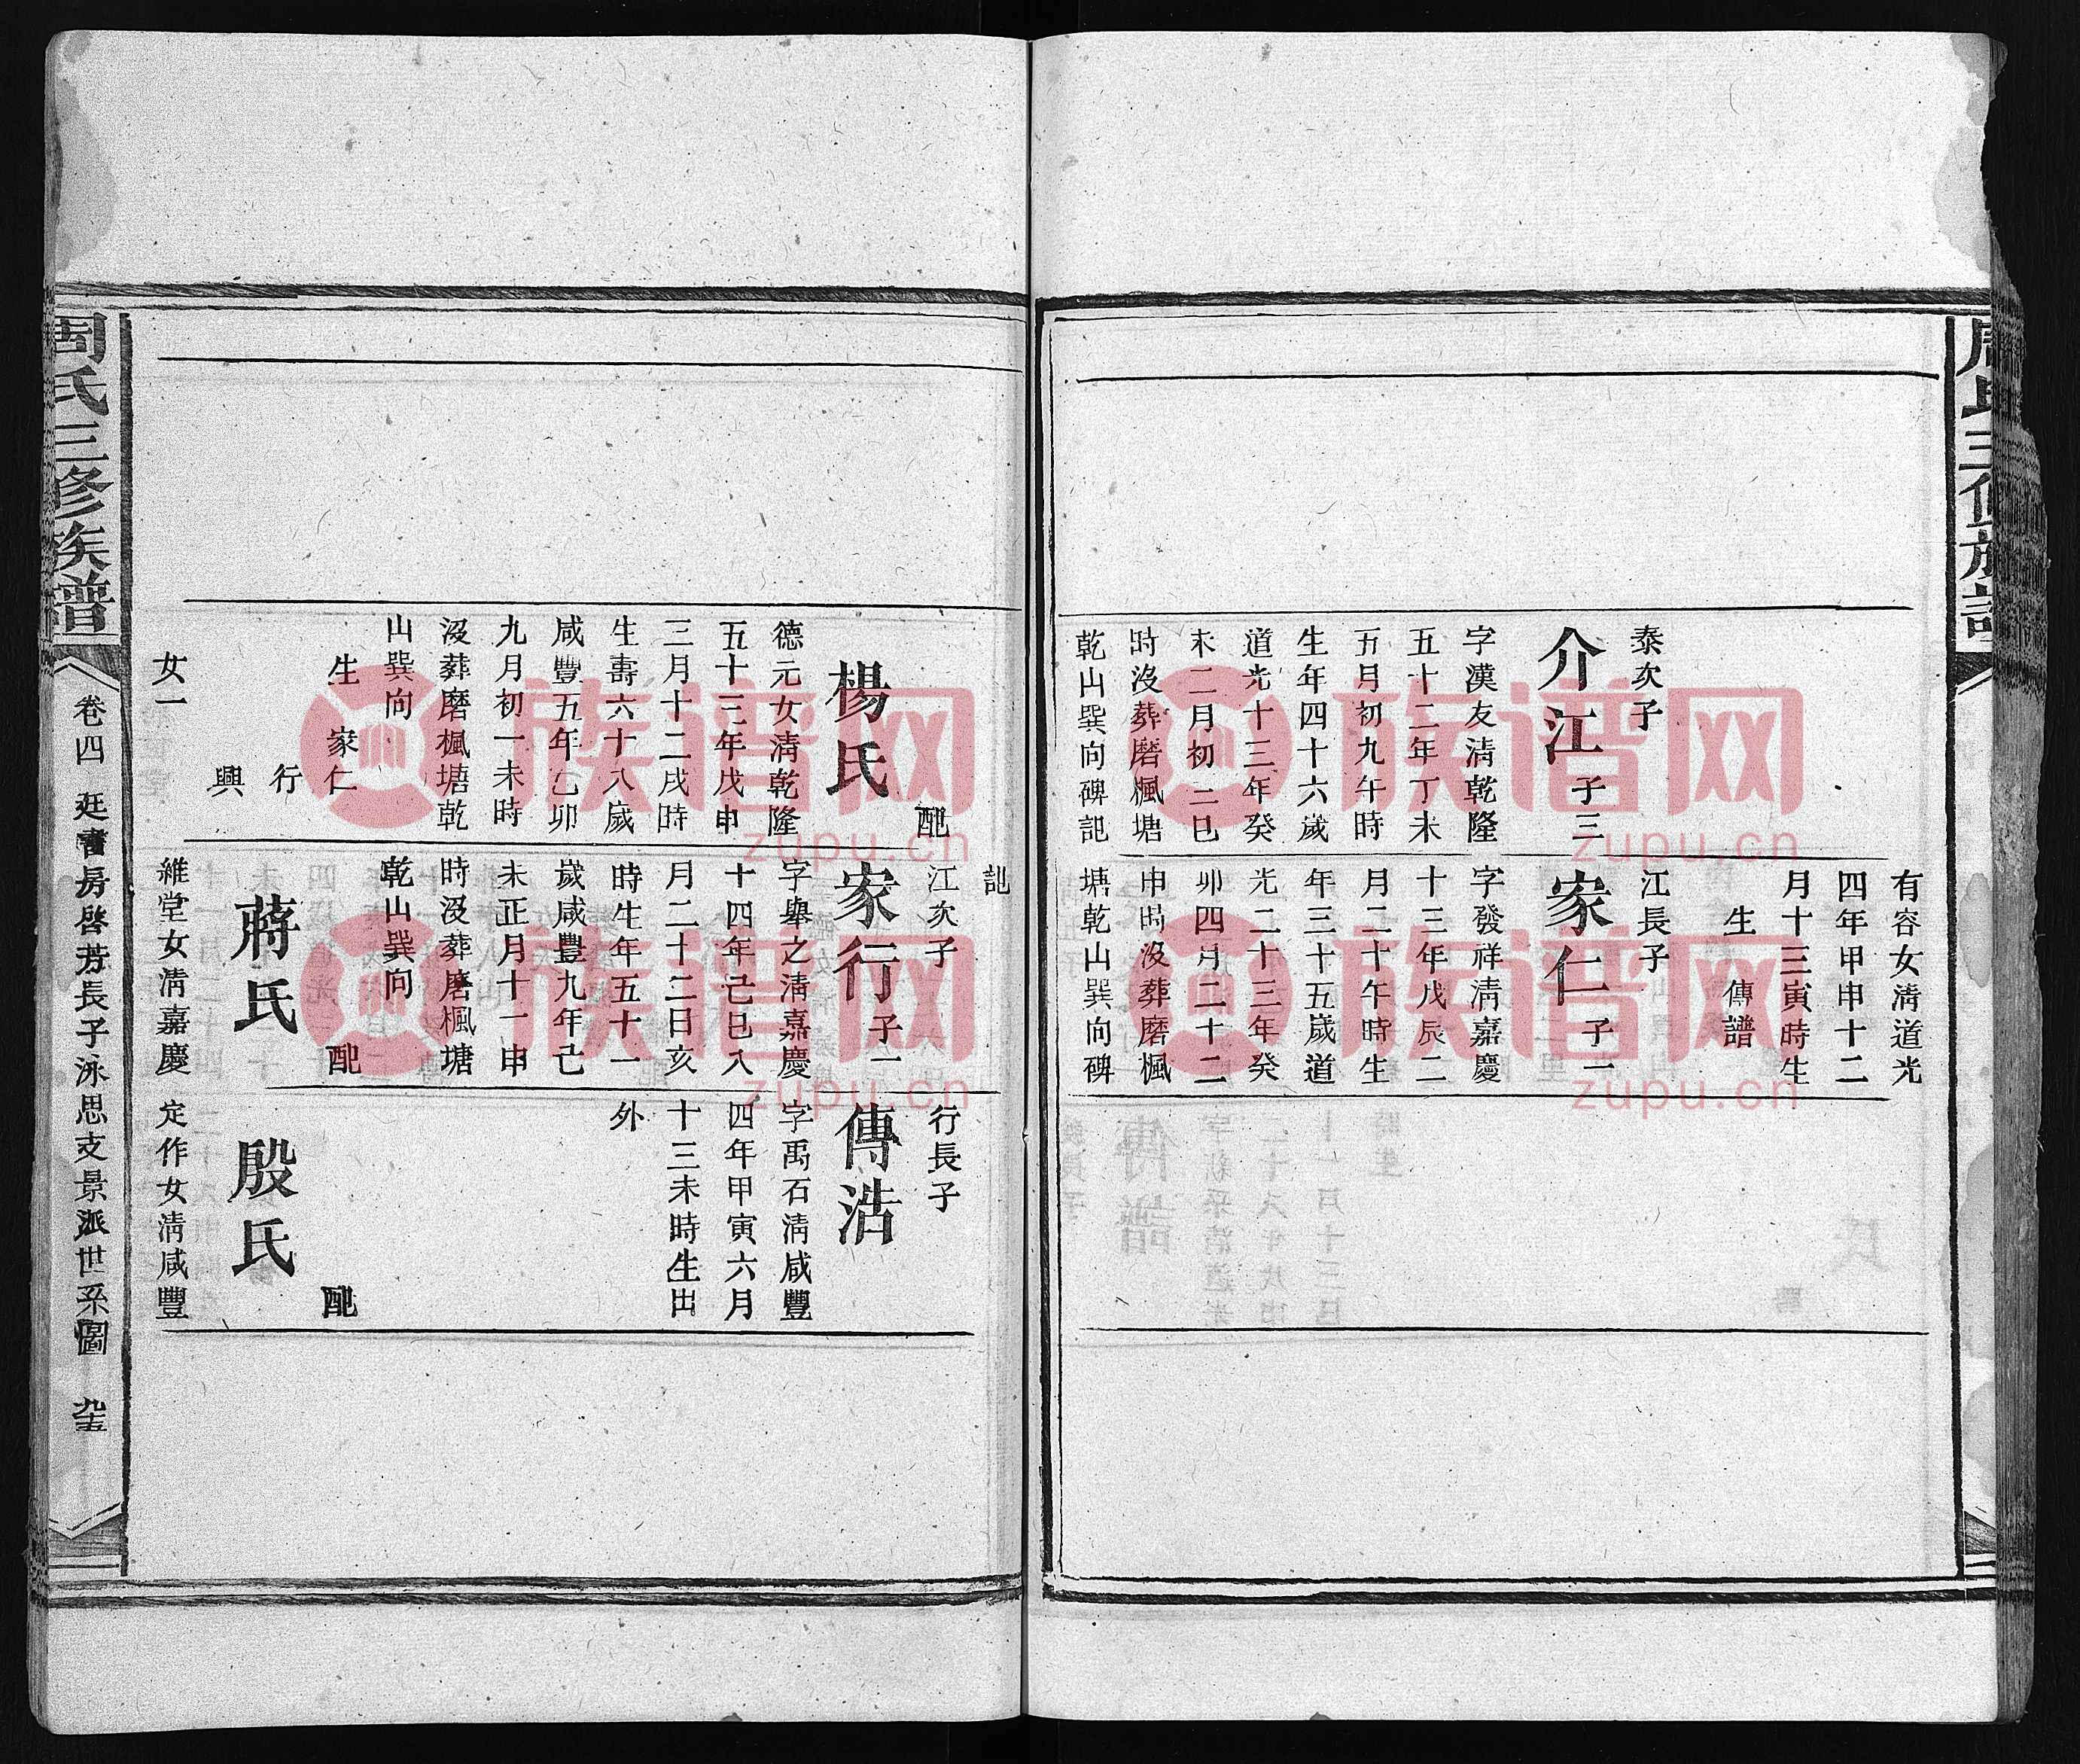 周氏三修族譜
泰次子
介江 子三
字漢友淸乾隆
五十二年丁未
五月初九午時
生年四十六歲
道光十三年癸
未二月初二巳
時沒葬磨楓塘
乾山巽向碑誌
有容女淸道光
四年甲申十二
月十三寅時生
生 傳譜
江長子
家仁 子一
字發祥淸嘉慶
十三年戊辰二
月二十午時生
年三十五歲道
光二十三年癸
卯四月二十二
申時沒葬磨楓
塘乾山巽向碑
配
楊氏
德元女淸乾隆
五十三年戊申
三月十二戌時
生壽六十八歲
咸豐五年乙卯
九月初一未時
沒葬磨楓塘乾
山巽向
生 家仁
行
興
女一
誌
江次子
家行 子一
字舉之淸嘉慶
十四年己巳八
月二十二日亥
時生年五十一
歲咸豐九年己
未正月十一申
時沒葬磨楓塘
乾山巽向
配
蔣氏
維堂女淸嘉慶
行長子
傳浩
字禹石淸咸豐
四年甲寅六月
十三未時生出
外
配
殷氏
定作女淸咸豐
周氏三修族譜
卷四 廷書房啓芳長子泳思支景派世系圖 九五
族谱网
zupu.cn
族谱网
zupu.cn
族谱网
zupu.cn
族谱网
zupu.cn